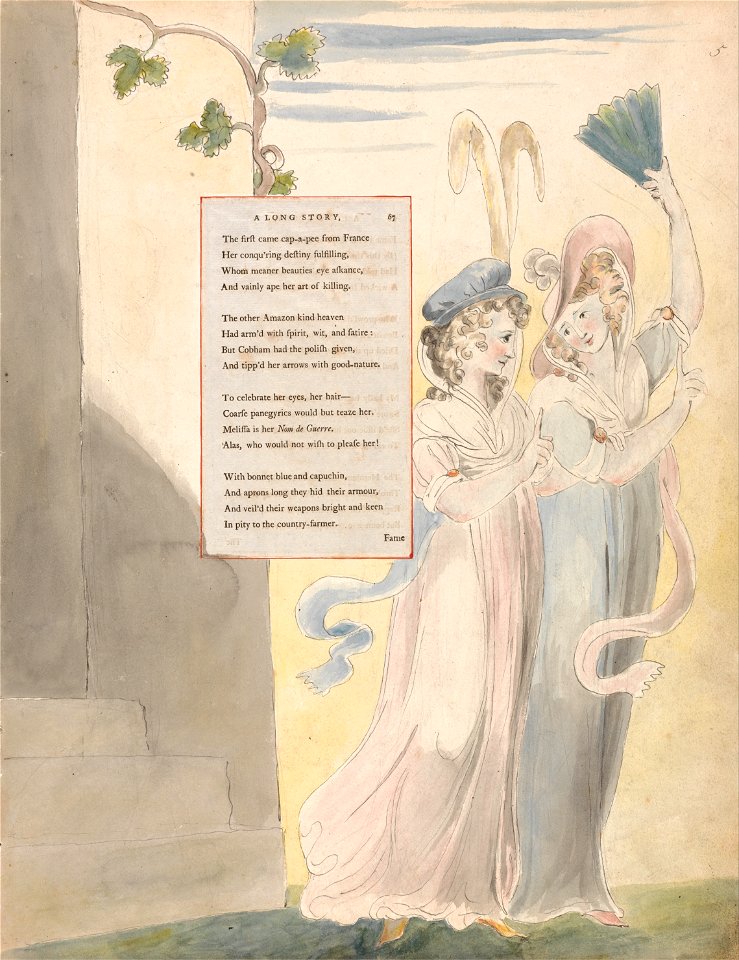 A LONG STORY,
67
The firſt came cap-a-pee from France
Her conqu'ring deſtiny fulfilling,
Whom meaner beauties eye aſkance,
And vainly ape her art of killing.
The other Amazon kind heaven
Had arm'd with ſpirit, wit, and ſatire:
But Cobham had the poliſh given,
And tipp'd her arrows with good-nature.
To celebrate her eyes, her hair—
Coarſe panegyrics would but teaze her.
Meliſſa is her Nom de Guerre.
Alas, who would not wiſh to pleaſe her!
With bonnet blue and capuchin,
And aprons long they hid their armour,
And veil'd their weapons bright and keen
In pity to the country-farmer.
Fame